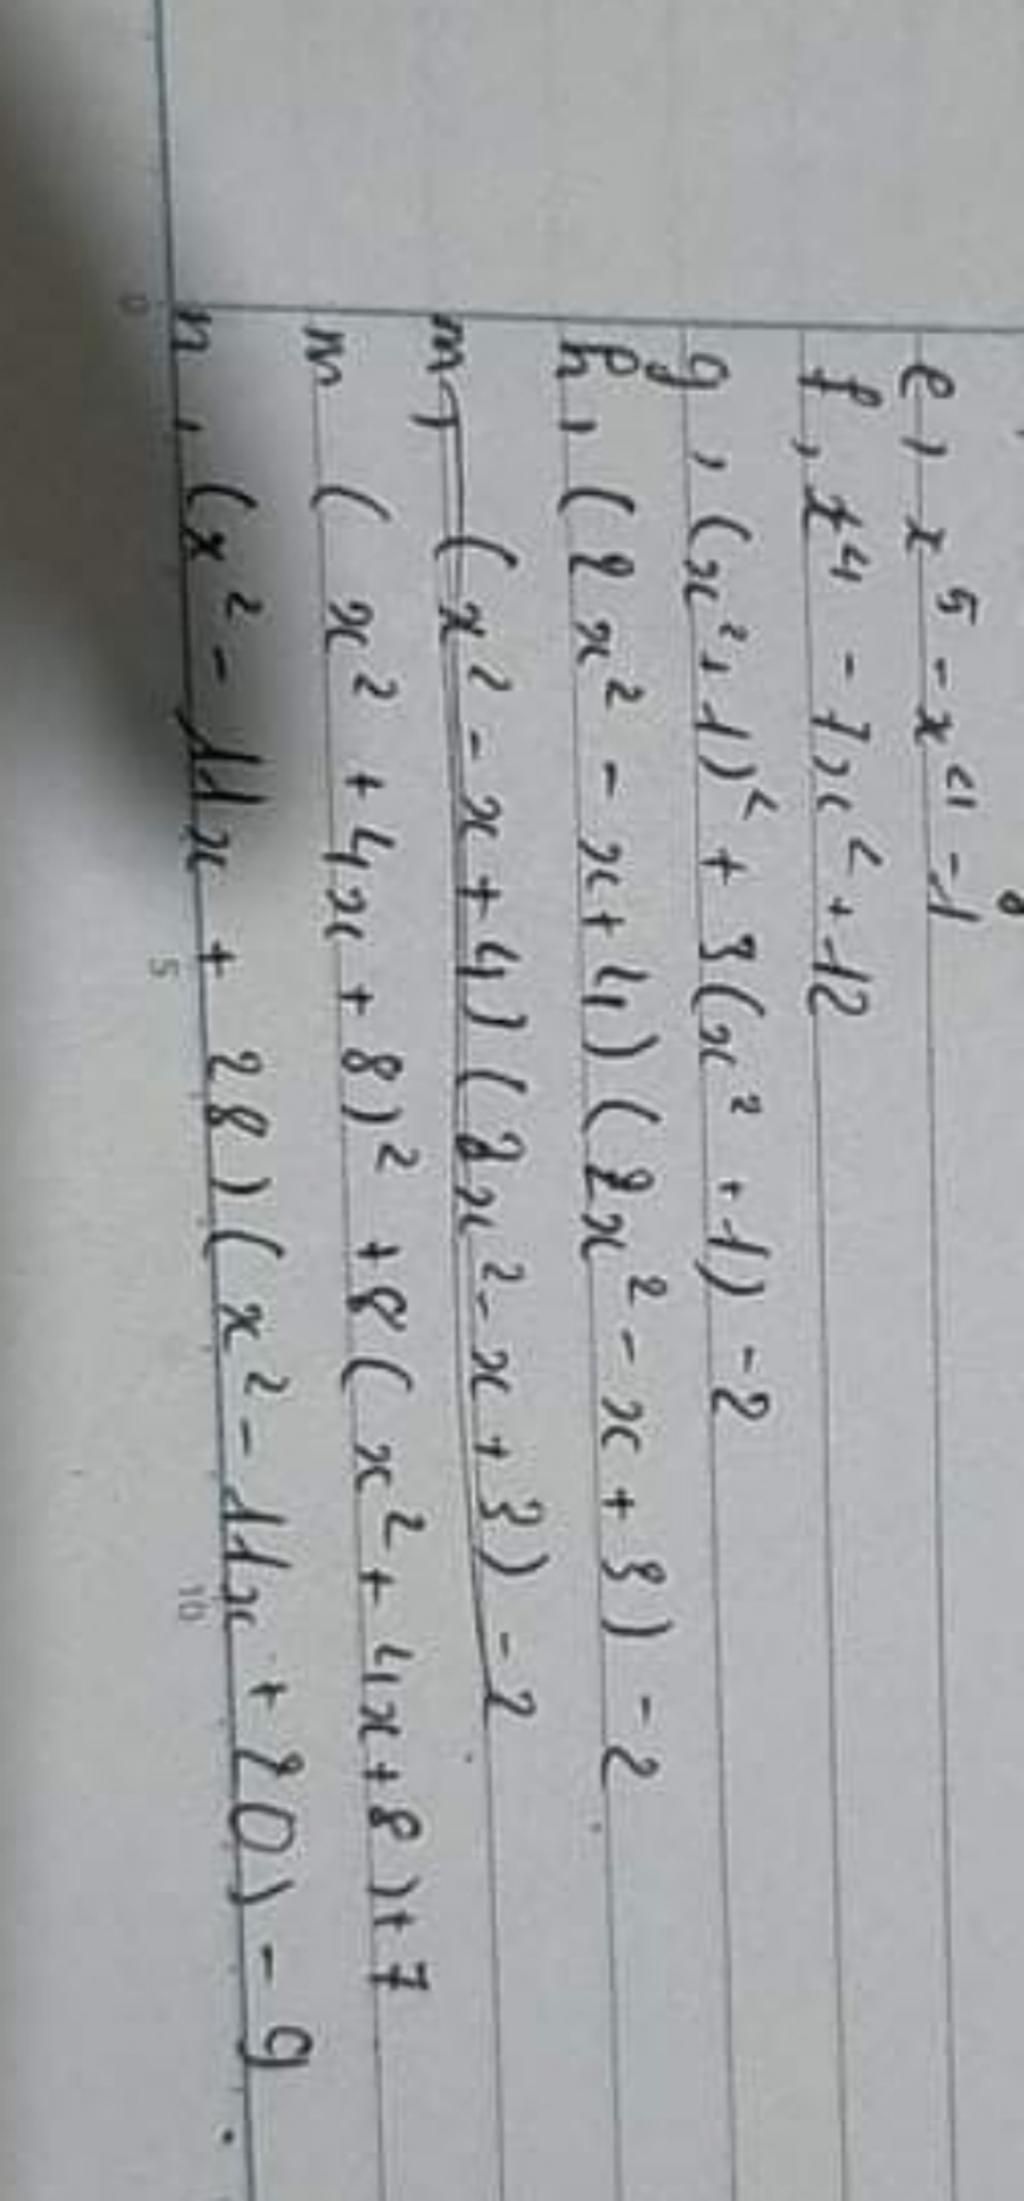 e, x⁵ - x⁴ - 1
f, x⁴ - 7x² + 12
g, (x² + 1)² + 3(x² + 1) - 2
h, (2x² - x + 4)(2x² - x + 3) - 2
m, (x² - x + 4)(2x² - x + 3) - 2
m (x² + 4x + 8)² + 8(x² + 4x + 8) + 7
n, (x² - 11x + 28)(x² - 11x + 20) - 9.
0 5 10